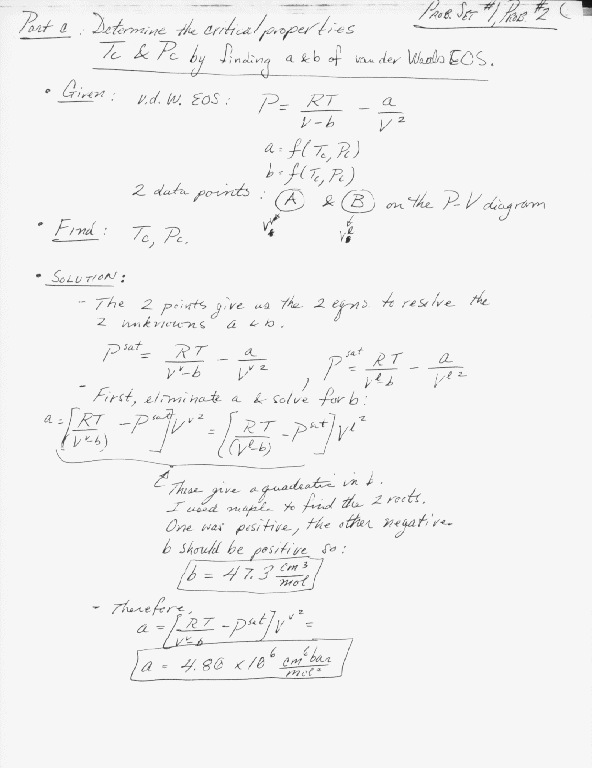 PROB. SET #1, PROB #2 (
Part c. Determine the critical properties
Tc & Pc by finding a & b of van der Waals EOS.
• Given: v.d.W. EOS: P = RT/(V-b) - a/V²
a = f(Tc, Pc)
b = f(Tc, Pc)
2 data points: (A) & (B) on the P-V diagram
Vᵛ Vˡ
• Find: Tc, Pc.
• SOLUTION:
- The 2 points give us the 2 eqns to resolve the
2 unknowns a & b.
Pˢᵃᵗ = RT/(Vᵛ-b) - a/Vᵛ² , Pˢᵃᵗ = RT/(Vˡ-b) - a/Vˡ²
- First, eliminate a & solve for b:
a = [RT/(Vᵛ-b) - Pˢᵃᵗ]Vᵛ² = [RT/(Vˡ-b) - Pˢᵃᵗ]Vˡ²
These give a quadratic in b.
I used maple to find the 2 roots.
One was positive, the other negative.
b should be positive so:
b = 47.3 cm³/mol
- Therefore,
a = [RT/(Vᵛ-b) - Pˢᵃᵗ]Vᵛ² =
a = 4.80 x 10⁶ cm⁶bar/mol²